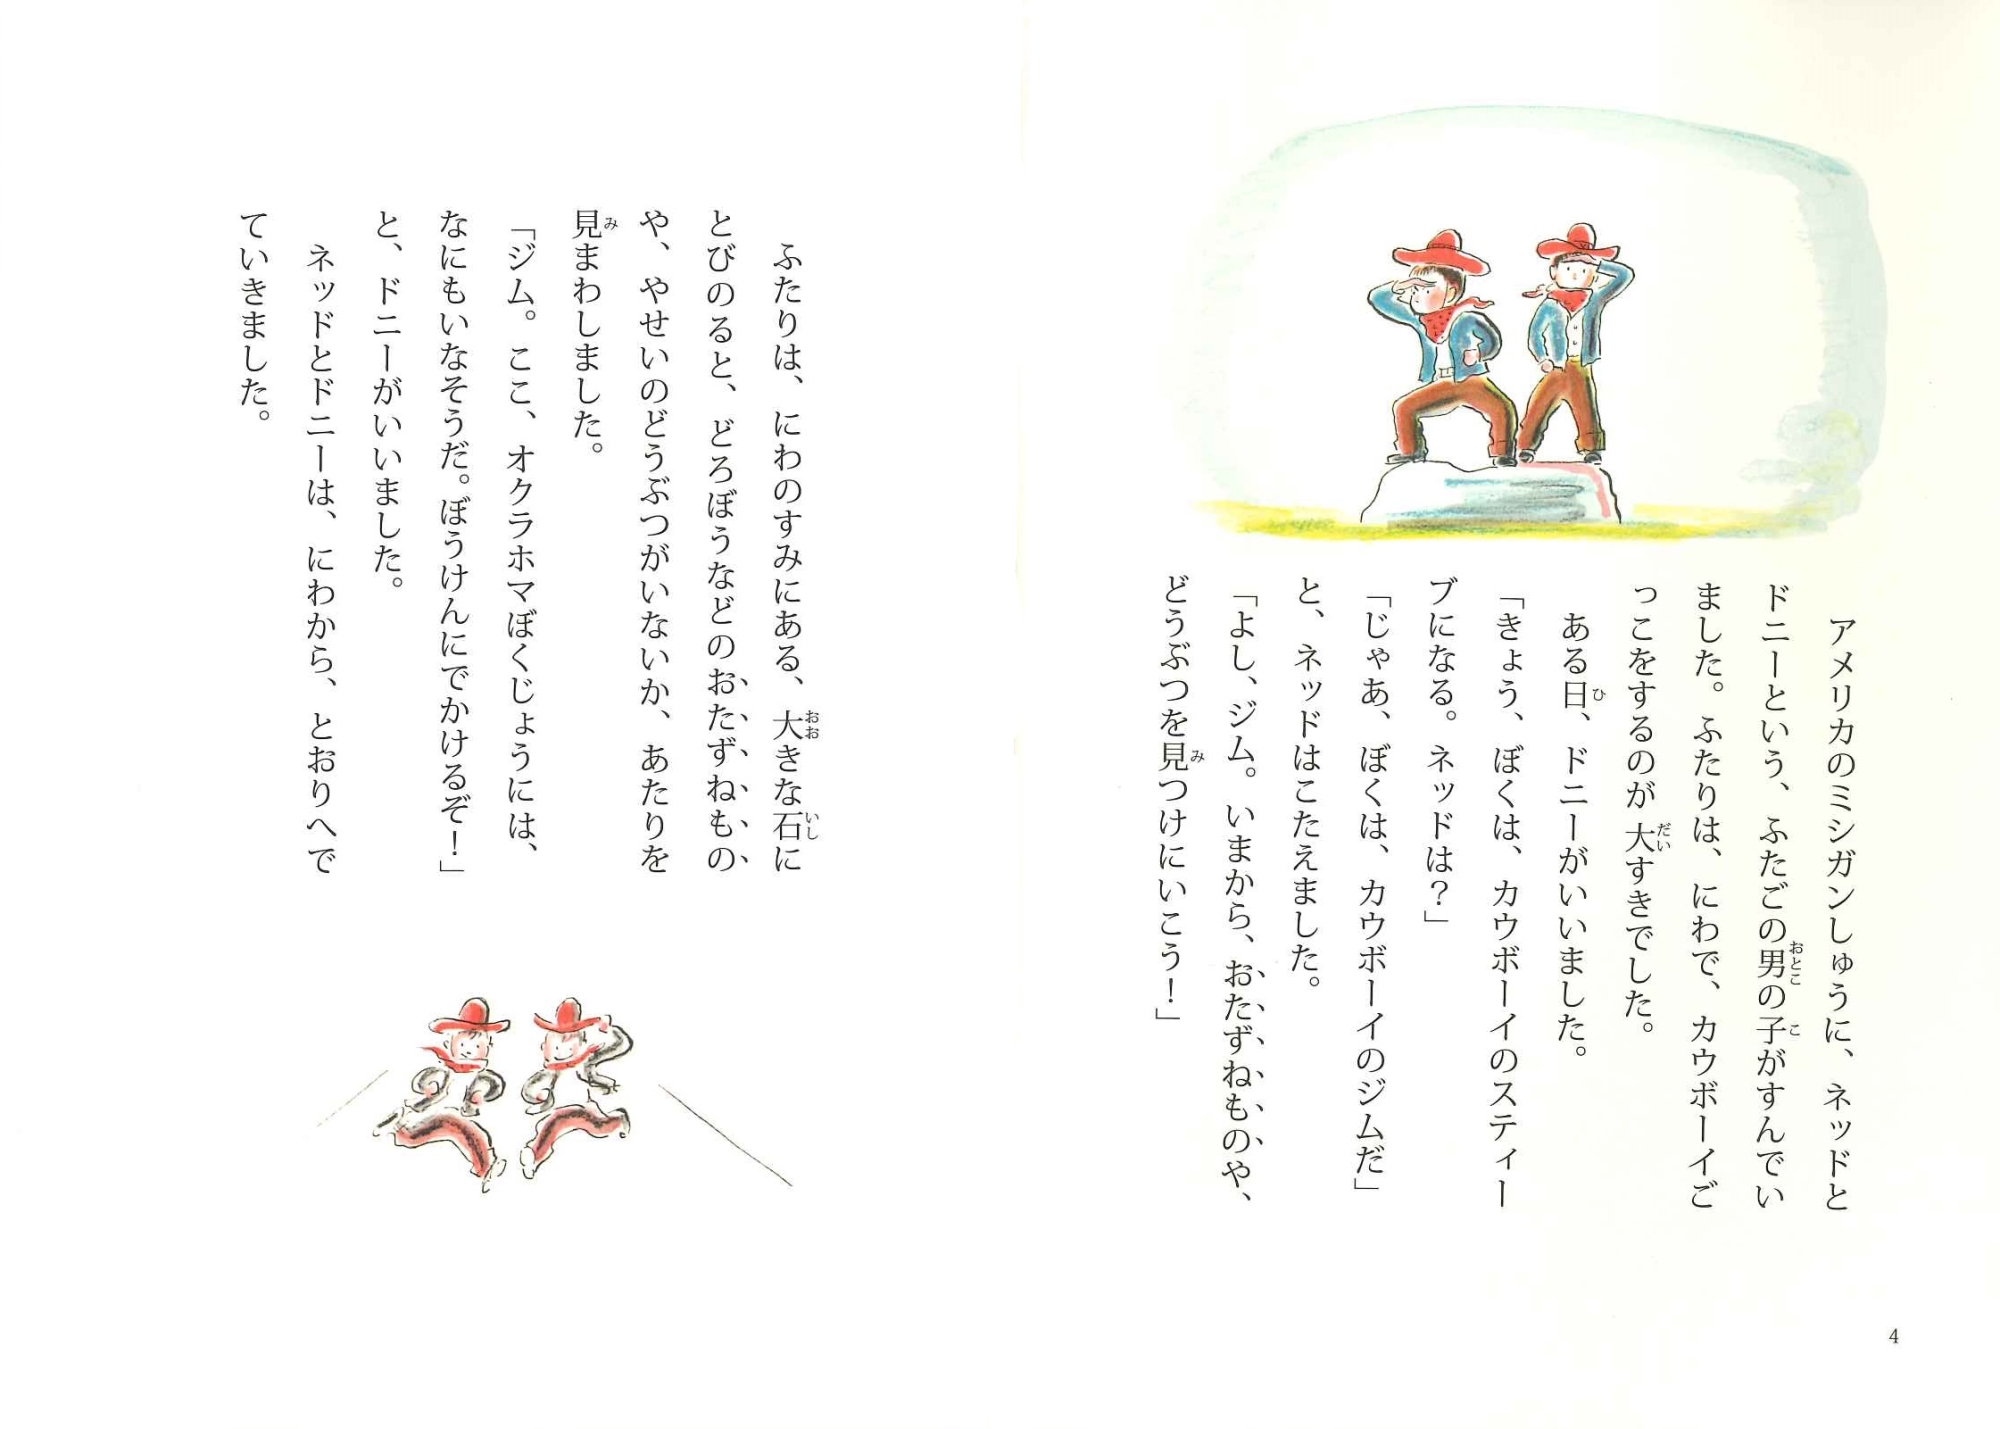 アメリカのミシガンしゅうに、ネッドと
ドニーという、ふたごの男の子がすんでい
ました。ふたりは、にわで、カウボーイご
っこをするのが大すきでした。
ある日、ドニーがいいました。
「きょう、ぼくは、カウボーイのスティー
ブになる。ネッドは？」
「じゃあ、ぼくは、カウボーイのジムだ」
と、ネッドはこたえました。
「よし、ジム。いまから、おたずねものや、
どうぶつを見つけにいこう！」
4
ふたりは、にわのすみにある、大きな石に
とびのると、どろぼうなどのおたずねもの
や、やせいのどうぶつがいないか、あたりを
見まわしました。
「ジム。ここ、オクラホマぼくじょうには、
なにもいなそうだ。ぼうけんにでかけるぞ！」
と、ドニーがいいました。
ネッドとドニーは、にわから、とおりへで
ていきました。